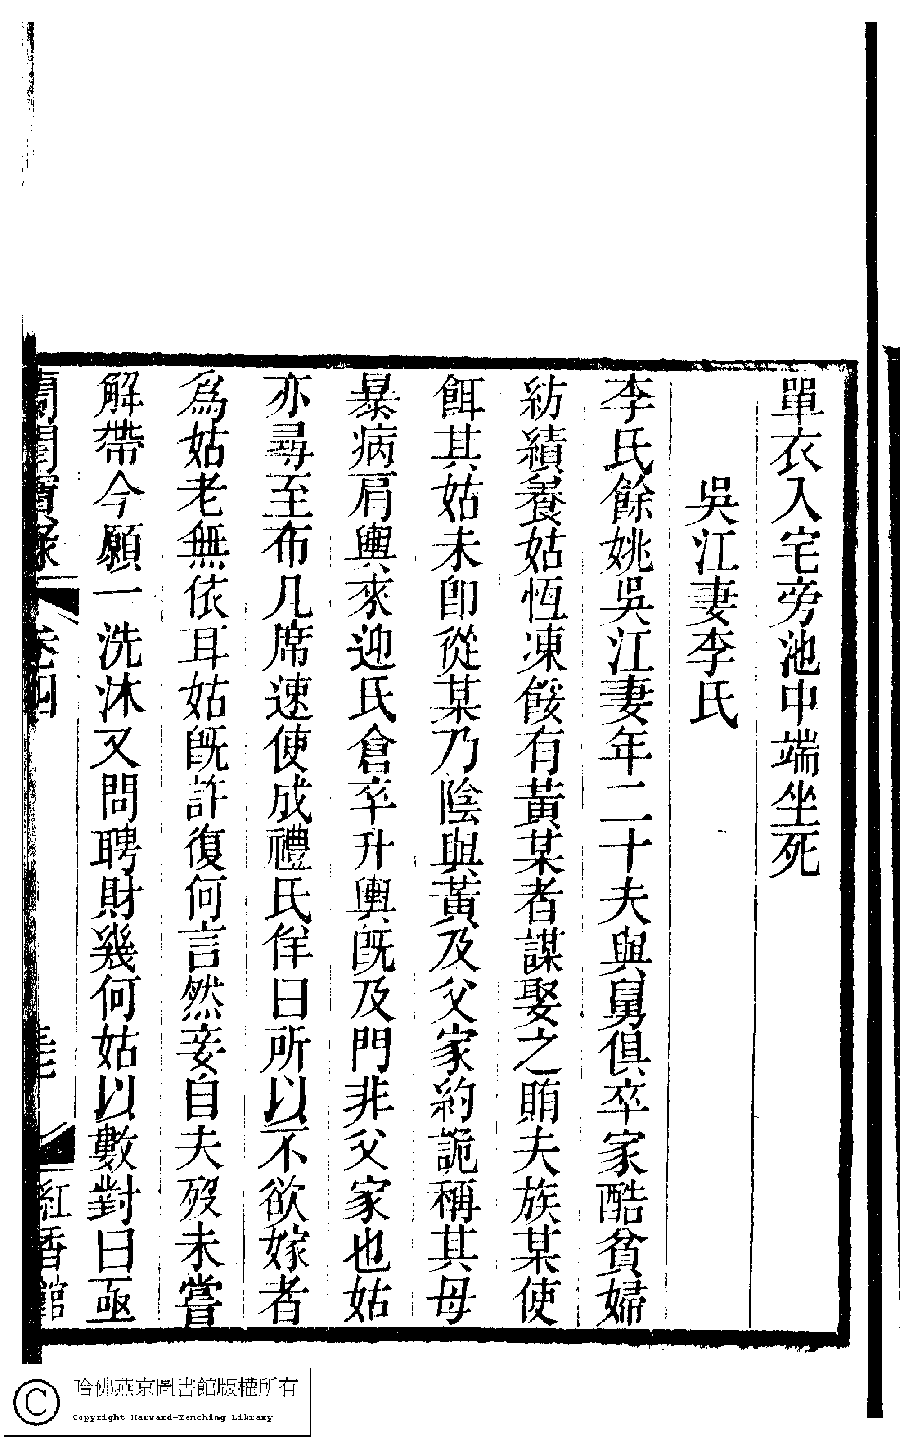 單衣入宅旁池中端坐死
吳江妻李氏
李氏餘姚吳江妻年二十夫與舅俱卒家酷貧婦
紡績養姑恆凍餒有黃某者謀娶之賄夫族某使
餌其姑未卽從某乃陰與黃及父家約詭稱其母
暴病肩輿來迎氏倉卒升輿旣及門非父家也姑
亦尋至布几席速使成禮氏佯曰所以不欲嫁者
爲姑老無依耳姑旣許復何言然妾自夫歿未嘗
解帶今願一洗沐又問聘財幾何姑以數對曰亟
卷四
紅香館
哈佛燕京圖書館版權所有
Copyright Harvard-Yenching Library